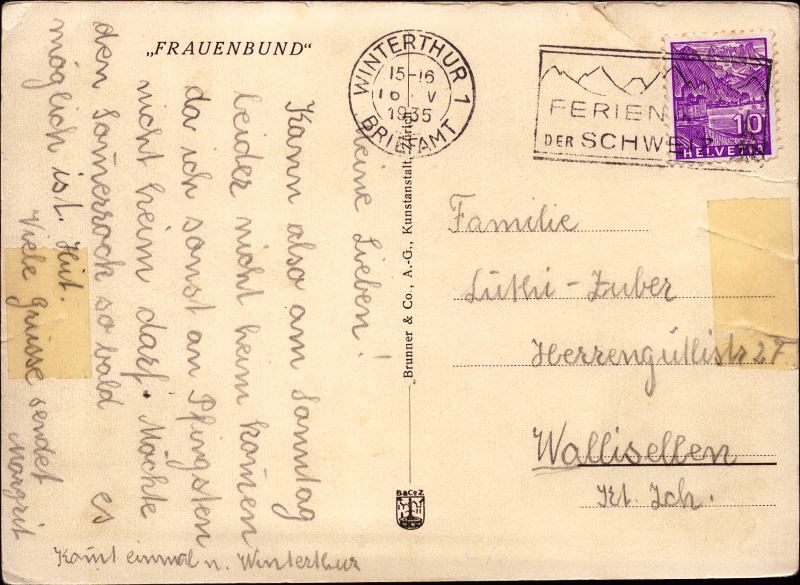 „FRAUENBUND“
WINTERTHUR 1
15-16
16 V
1935
BRIEFAMT
FERIEN
DER SCHWEIZ
10
HELVETIA
Meine Lieben!
Kann also am Sonntag
leider nicht heim kom̄en
da ich sonst an Pfingsten
nicht heim darf. Möchte
den Som̄errock so bald es
möglich ist. Hut.
Viele Grüsse sendet
Margrit
Kom̄t einmal n. Winterthur
Brunner & Co., A.-G., Kunstanstalt, Zürich
B&Co Z
Familie
Lüthi-Zuber
Herrengütlistr 27
Wallisellen
Kt. Zch.